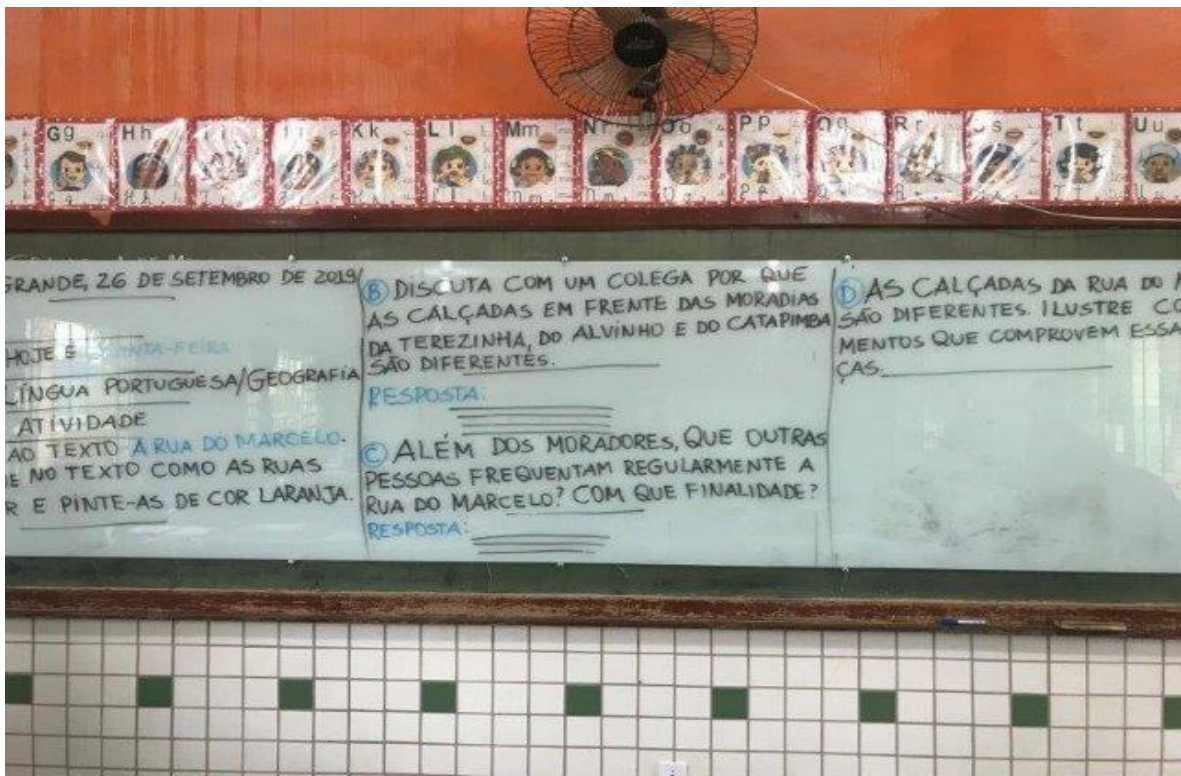 Gg Hh Kk Ll Mm Pp Rr Tt Uu
GRANDE, 26 DE SETEMBRO DE 2019
HOJE É QUINTA-FEIRA
LÍNGUA PORTUGUESA/GEOGRAFIA
ATIVIDADE
AO TEXTO A RUA DO MARCELO.
E NO TEXTO COMO AS RUAS
R E PINTE-AS DE COR LARANJA.
B DISCUTA COM UM COLEGA POR QUE
AS CALÇADAS EM FRENTE DAS MORADIAS
DA TEREZINHA, DO ALVINHO E DO CATAPIMBA
SÃO DIFERENTES.
RESPOSTA:
C ALÉM DOS MORADORES, QUE OUTRAS
PESSOAS FREQUENTAM REGULARMENTE A
RUA DO MARCELO? COM QUE FINALIDADE?
RESPOSTA:
D AS CALÇADAS DA RUA DO M
SÃO DIFERENTES. ILUSTRE CO
MENTOS QUE COMPROVEM ESSA
ÇAS.